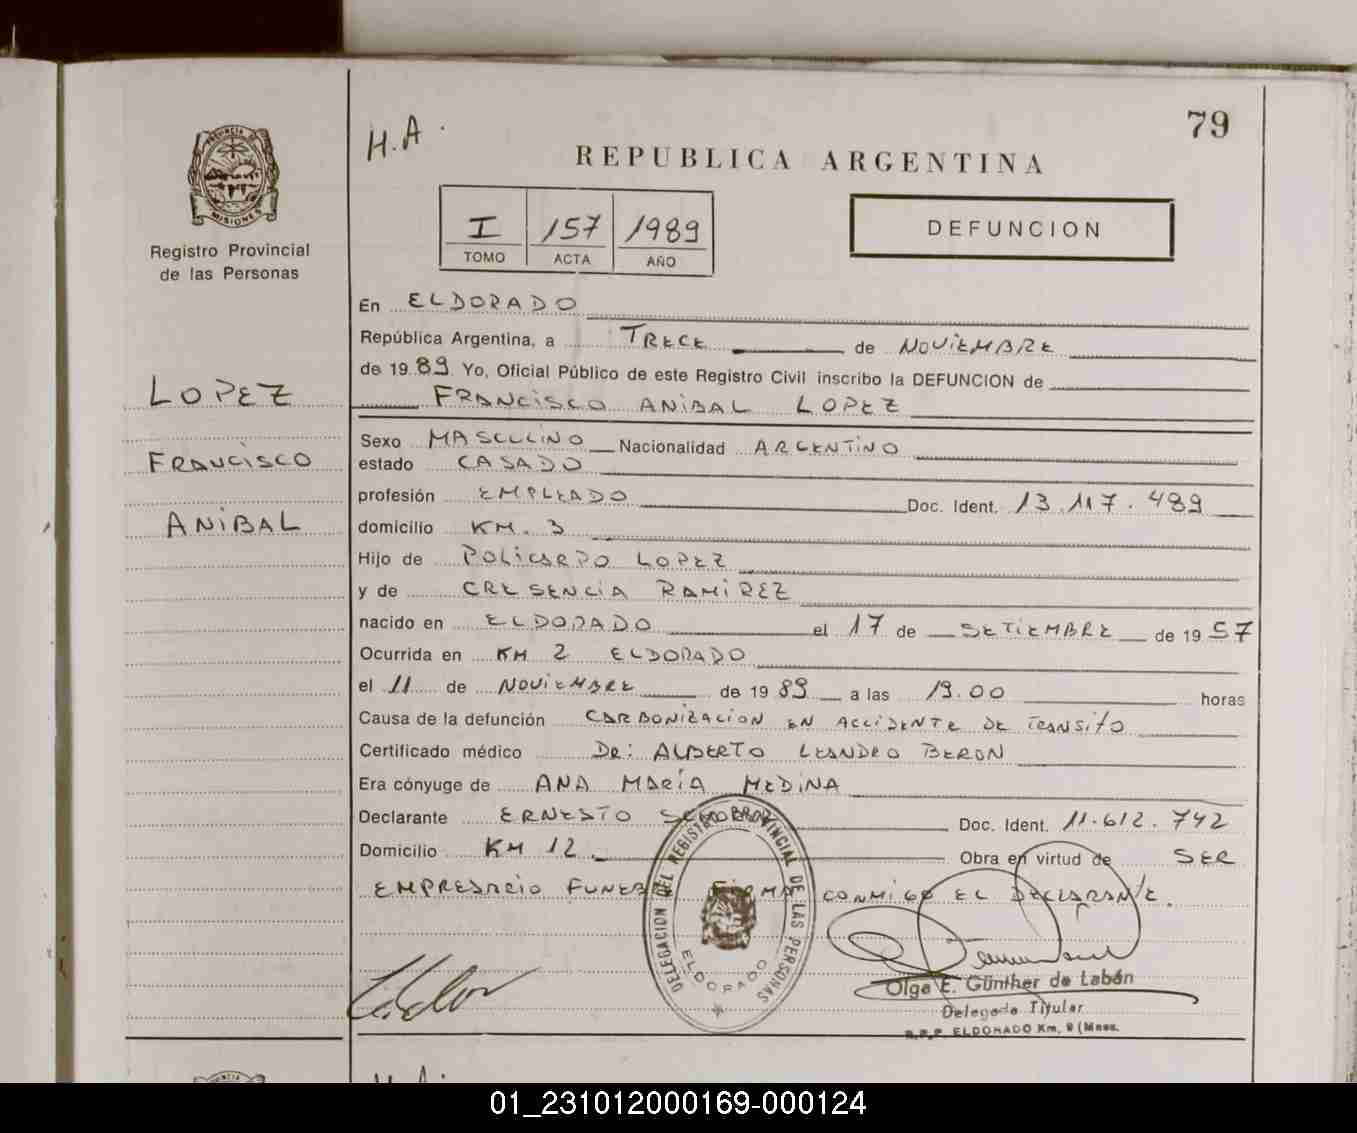 79
H.A.
REPUBLICA ARGENTINA
PROVINCIA DE
MISIONES
Registro Provincial
de las Personas
I 157 1989
TOMO ACTA AÑO
DEFUNCION
LOPEZ
FRANCISCO
ANIBAL
En ELDORADO
República Argentina, a TRECE de NOVIEMBRE
de 1989 Yo, Oficial Público de este Registro Civil inscribo la DEFUNCION de
FRANCISCO ANIBAL LOPEZ
Sexo MASCULINO Nacionalidad ARGENTINO
estado CASADO
profesión EMPLEADO Doc. Ident. 13.117.489
domicilio KM. 3
Hijo de POLICARPO LOPEZ
y de CRESENCIA RAMIREZ
nacido en ELDORADO el 17 de SETIEMBRE de 1957
Ocurrida en KM 2 ELDORADO
el 11 de NOVIEMBRE de 1989 a las 19.00 horas
Causa de la defunción CARBONIZACION EN ACCIDENTE DE TRANSITO
Certificado médico DR: ALBERTO LEANDRO BERON
Era cónyuge de ANA MARÍA MEDINA
Declarante ERNESTO Doc. Ident. 11.612.742
Domicilio KM 12 Obra en virtud de SER
EMPRESARIO FIRMA CONMIGO EL DECLARANTE.
DELEGACION DEL REGISTRO PROVINCIAL DE LAS PERSONAS
ELDORADO
Olga E. Günther de Labán
Delegada Titular
R.P.P. ELDORADO Km. 9 (Mnes.
H.A.
01_231012000169-000124